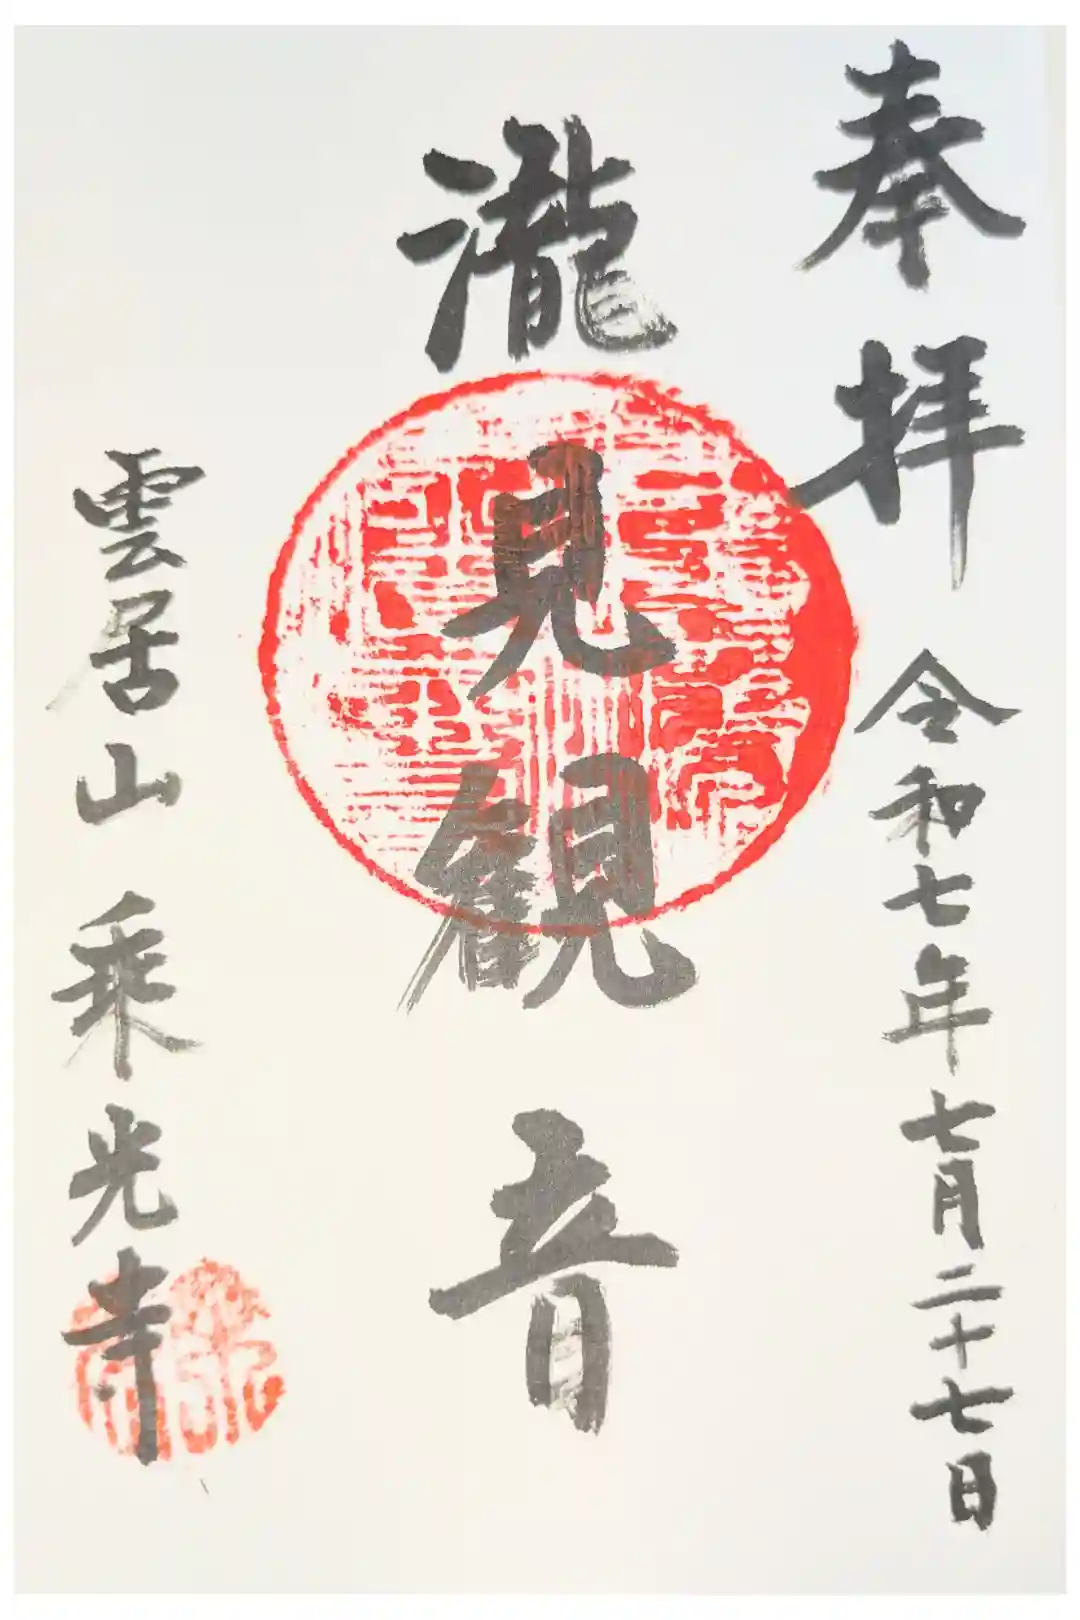 奉拝
令和七年七月二十七日
瀧見観音
雲居山 乗光寺